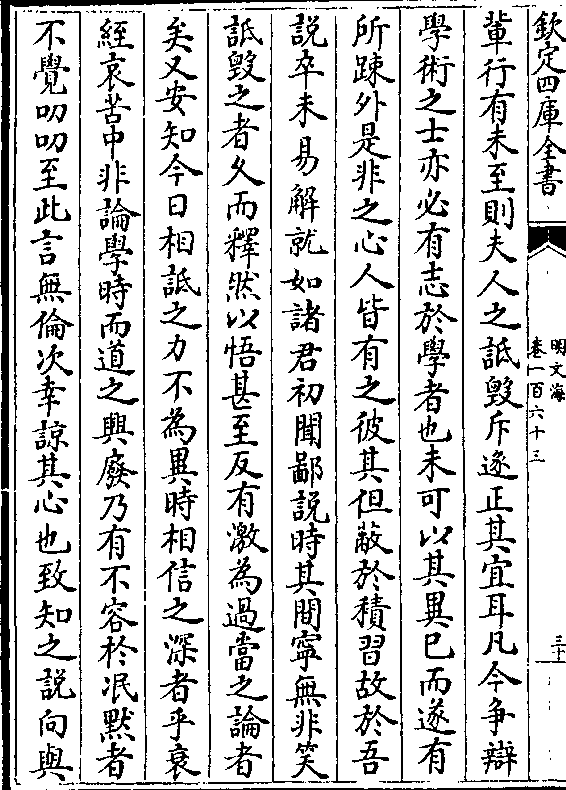 欽定四庫全書
明文海
卷一百六十三
三十
輩行有未至則夫人之詆毀斥逐正其宜耳凡今争辯
學術之士亦必有志於學者也未可以其異已而遂有
所踈外是非之心人皆有之彼其但蔽於積習故於吾
説卒未易解就如諸君初聞鄙説時其間寧無非笑
詆毁之者久而釋然以悟甚至反有激為過當之論者
矣又安知今日相詆之力不為異時相信之深者乎衰
絰哀苦中非論學時而道之興廢乃有不容於泯黙者
不覺叨叨至此言無倫次幸諒其心也致知之説向與